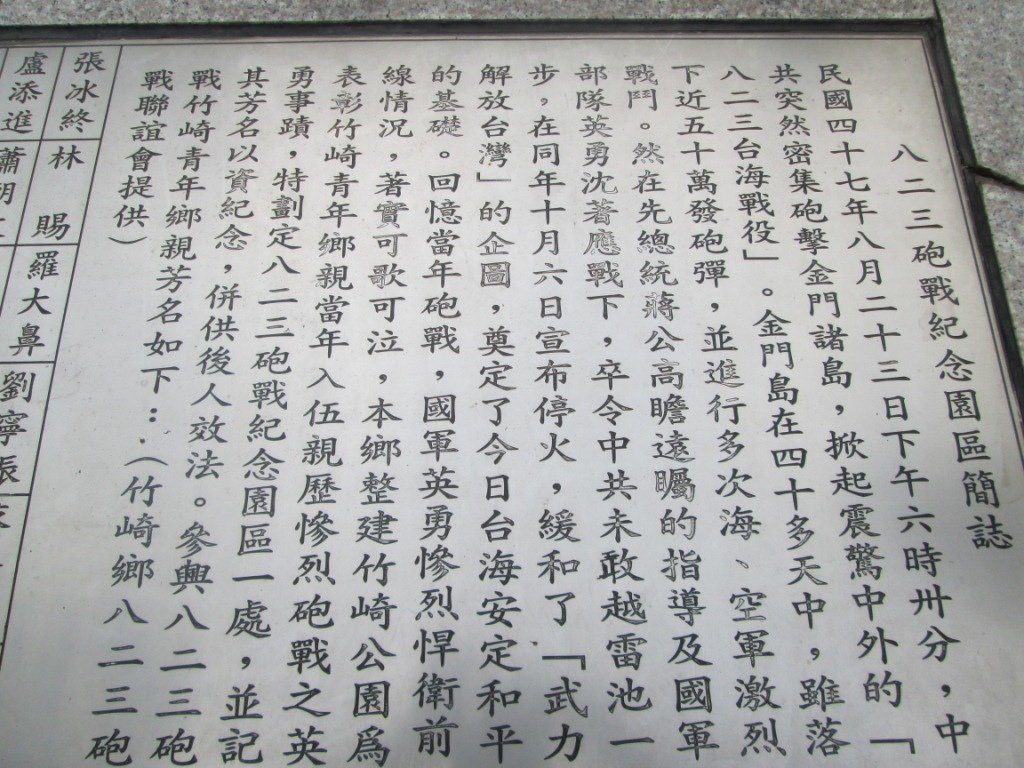 八二三砲戰紀念園區簡誌
民國四十七年八月二十三日下午六時卅分，中
共突然密集砲擊金門諸島，掀起震驚中外的「
八二三台海戰役」。金門島在四十多天中，雖落
下近五十萬發砲彈，並進行多次海、空軍激烈
戰鬥。然在先總統蔣公高瞻遠矚的指導及國軍
部隊英勇沈著應戰下，卒令中共未敢越雷池一
步，在同年十月六日宣布停火，緩和了「武力
解放台灣」的企圖，奠定了今日台海安定和平
的基礎。回憶當年砲戰，國軍英勇慘烈悍衛前
線情況，著實可歌可泣，本鄉整建竹崎公園爲
表彰竹崎青年鄉親當年入伍親歷慘烈砲戰之英
勇事蹟，特劃定八二三砲戰紀念園區一處，並記
其芳名以資紀念，併供後人效法。參興八二三砲
戰竹崎青年鄉親芳名如下：（竹崎鄉八二三砲
戰聯誼會提供）
張冰終
林賜
羅大鼻
劉寧張
盧添進